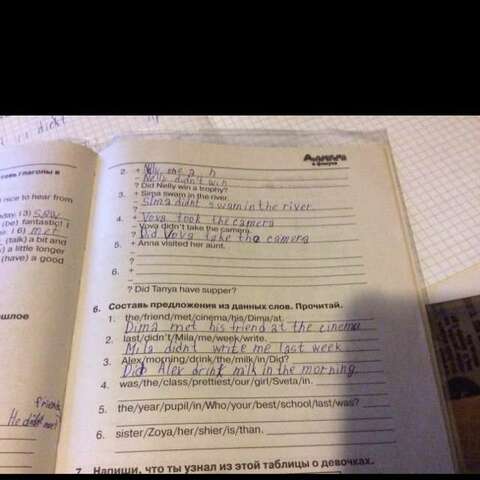 didt
тавь глаголы в
nice to hear from
day. (3) saw
(be) fantastic! I
e. (6) met
(talk) a bit and
) a little longer
(have) a good
ошлое
friend
He didnt meet
2. +
– Nelly didn't win
? Did Nelly win a trophy?
3. + Sima swam in the river.
– Sima didnt swam in the river.
?
4. + Vova took the camera
– Vova didn't take the camera.
? Did Vova take the camera
5. + Anna visited her aunt.
–
?
6. +
–
? Did Tanya have supper?
6. Составь предложения из данных слов. Прочитай.
1. the/friend/met/cinema/his/Dima/at.
Dima met his friend at the cinema
2. last/didn't/Mila/me/week/write.
Mila didnt write me last week
3. Alex/morning/drink/the/milk/in/Did?
Did Alex drink milk in the morning
4. was/the/class/prettiest/our/girl/Sveta/in.
5. the/year/pupil/in/Who/your/best/school/last/was?
6. sister/Zoya/her/shier/is/than.
7. Напиши, что ты узнал из этой таблицы о девочках.